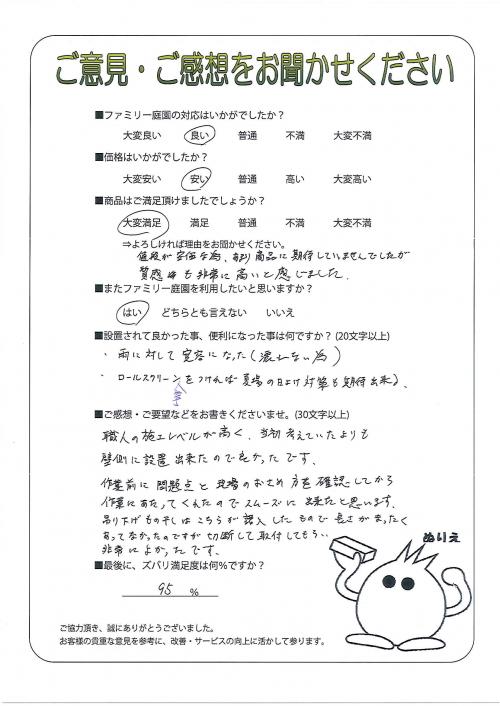 ご意見・ご感想をお聞かせください
■ファミリー庭園の対応はいかがでしたか？
大変良い 良い 普通 不満 大変不満
■価格はいかがでしたか？
大変安い 安い 普通 高い 大変高い
■商品はご満足頂けましたでしょうか？
大変満足 満足 普通 不満 大変不満
⇒よろしければ理由をお聞かせください。
値段が安価な為、あまり商品に期待していませんでしたが
質感 も非常に高いと感じました.
■またファミリー庭園を利用したいと思いますか？
はい どちらとも言えない いいえ
■設置されて良かった事、便利になった事は何ですか？(20文字以上)
・雨に対して寛容になった(濡れない為)
・ロールスクリーン等をつければ夏場の日よけ対策も期待出来る.
■ご感想・ご要望などをお書きくださいませ。(30文字以上)
職人の施工レベルが高く、当初考えていたよりも
壁側に設置出来たので良かったです.
作業前に問題点と現場のおさめ方を確認してから
作業にあたってくれたのでスムーズに出来たと思います.
吊り下げもの干しはこちらが購入したもので長さがまったく
あってなかったのですが切断して取付してもらい
非常によかったです.
■最後に、ズバリ満足度は何%ですか？
95 %
ぬりえ
ご協力頂き、誠にありがとうございました。
お客様の貴重な意見を参考に、改善・サービスの向上に活かして参ります。